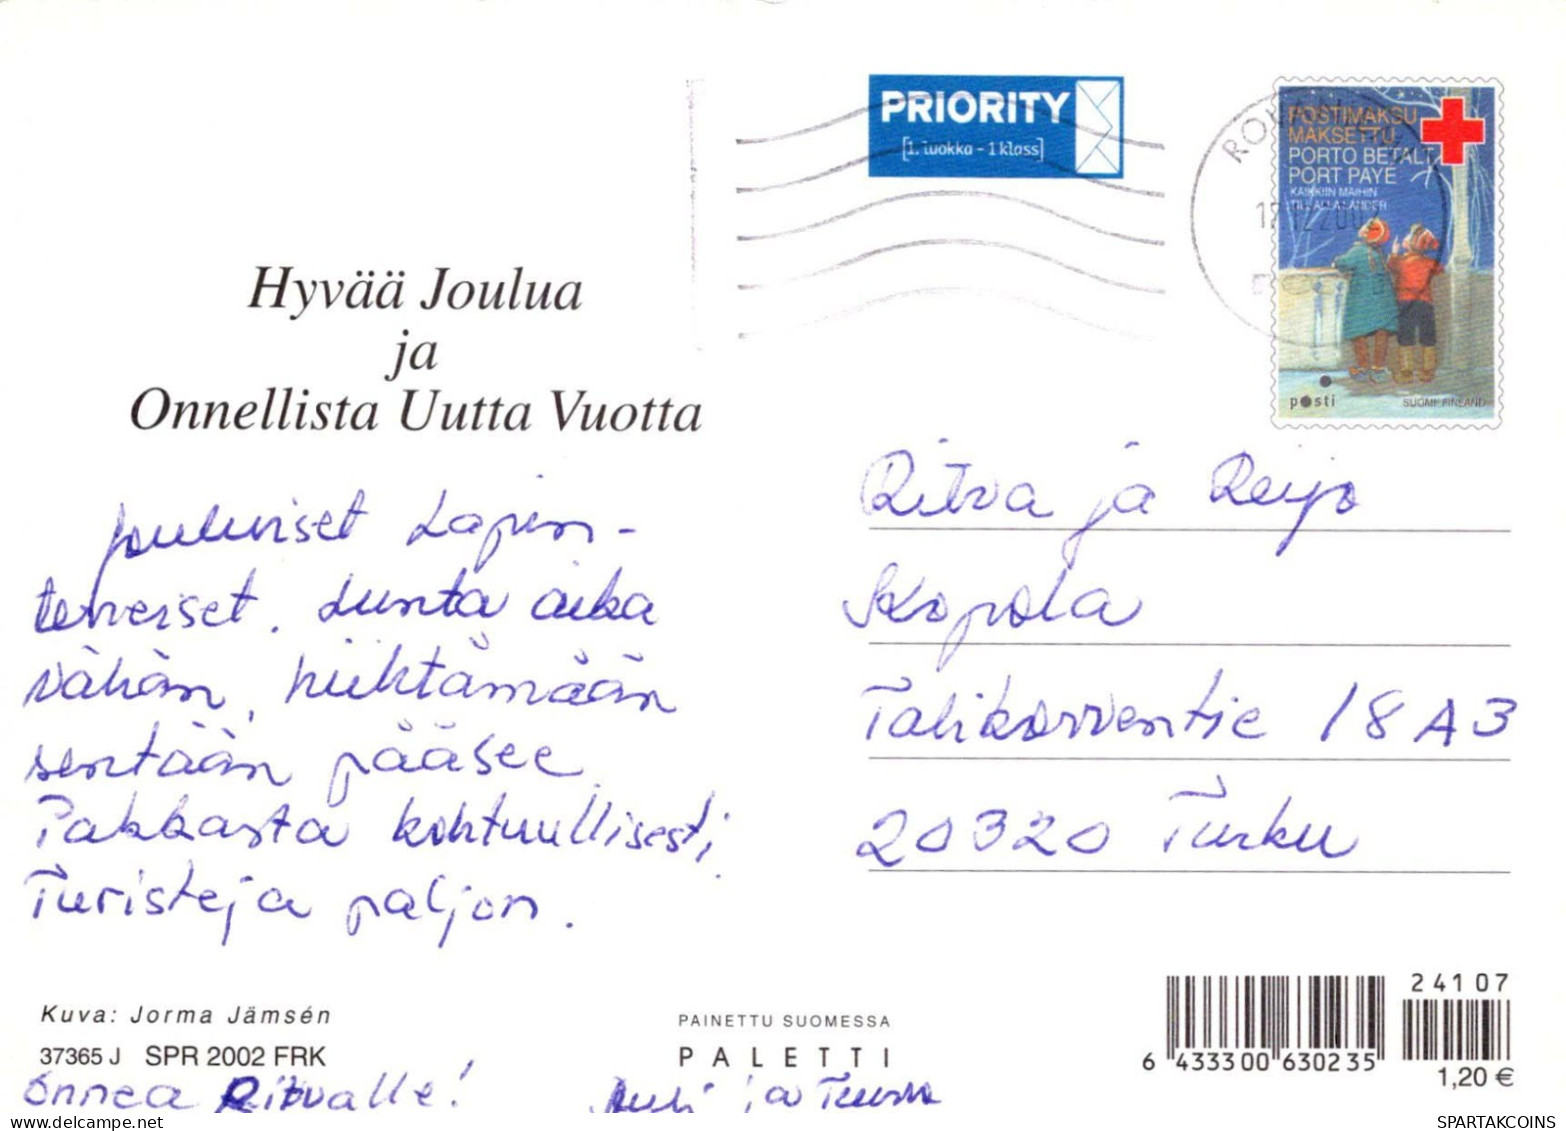 PRIORITY
[1. luokka - 1 klass]
POSTIMAKSU
MAKSETTU
PORTO BETALT
PORT PAYE
KAIKKIIN MAIHIN
TILL ALLA LÄNDER
posti
SUOMI FINLAND
Hyvää Joulua
ja
Onnellista Uutta Vuotta
Jouluiset Lapin-
terveiset. Lunta aika
vähän, hiihtämään
sentään pääsee.
Pakkasta kohtuullisesti,
Turisteja paljon.
Ritva ja Reijo
Talikorventie 18 A 3
20320 Turku
Kuva: Jorma Jämsén
37365 J SPR 2002 FRK
Onnea Ritvalle!
ja
PAINETTU SUOMESSA
PALETTI
24107
6 433300 630235
1,20 €
SPARTAKCOINS